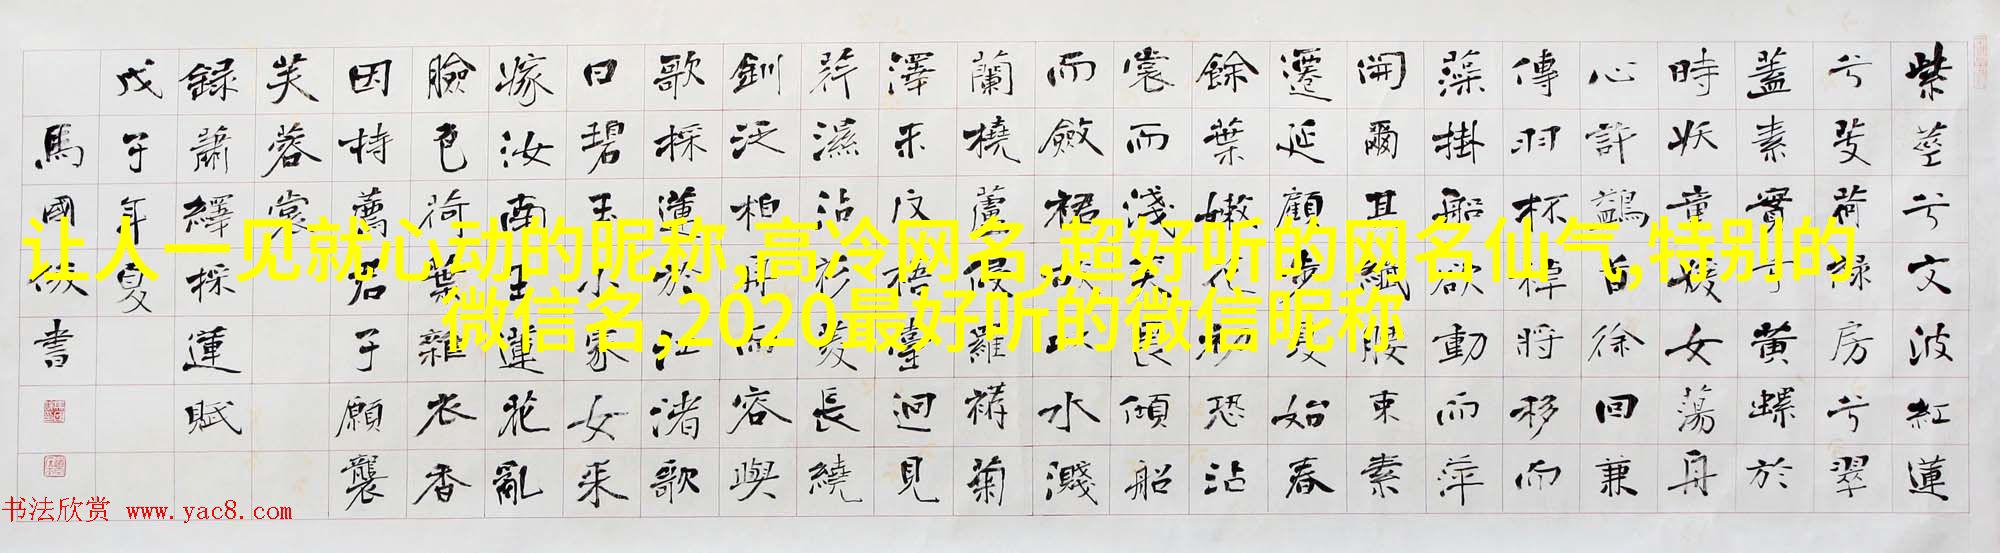 紫莖兮文波紅蓮
兮芰荷綠房兮翠
蓋素實兮黃螺於
時妖童媛女蕩舟
心許鷁首徐回兼
傳羽杯棹將移而
藻掛船欲動而萍
開爾其纖腰束素
遷延顧步夏始春
餘葉嫩花初恐沾
裳而淺笑畏傾船
而斂裾故以水濺
蘭橈蘆侵羅襪菊
澤未反梧臺迥見
荇濕沾衫菱長繞
釧泛柏舟而容與
歌採蓮於江渚歌
曰碧玉小家女来
嫁汝南王蓮花亂
臉色荷葉雜衣香
因持薦君子願襲
芙蓉裳
録蕭繹採蓮賦
戊子年夏
馬國俊書
让人一见就心动的昵称,高冷网名,超好听的网名仙气,特别的
微信名,2020最好听的微信昵称
书法欣赏 www.yac8.com